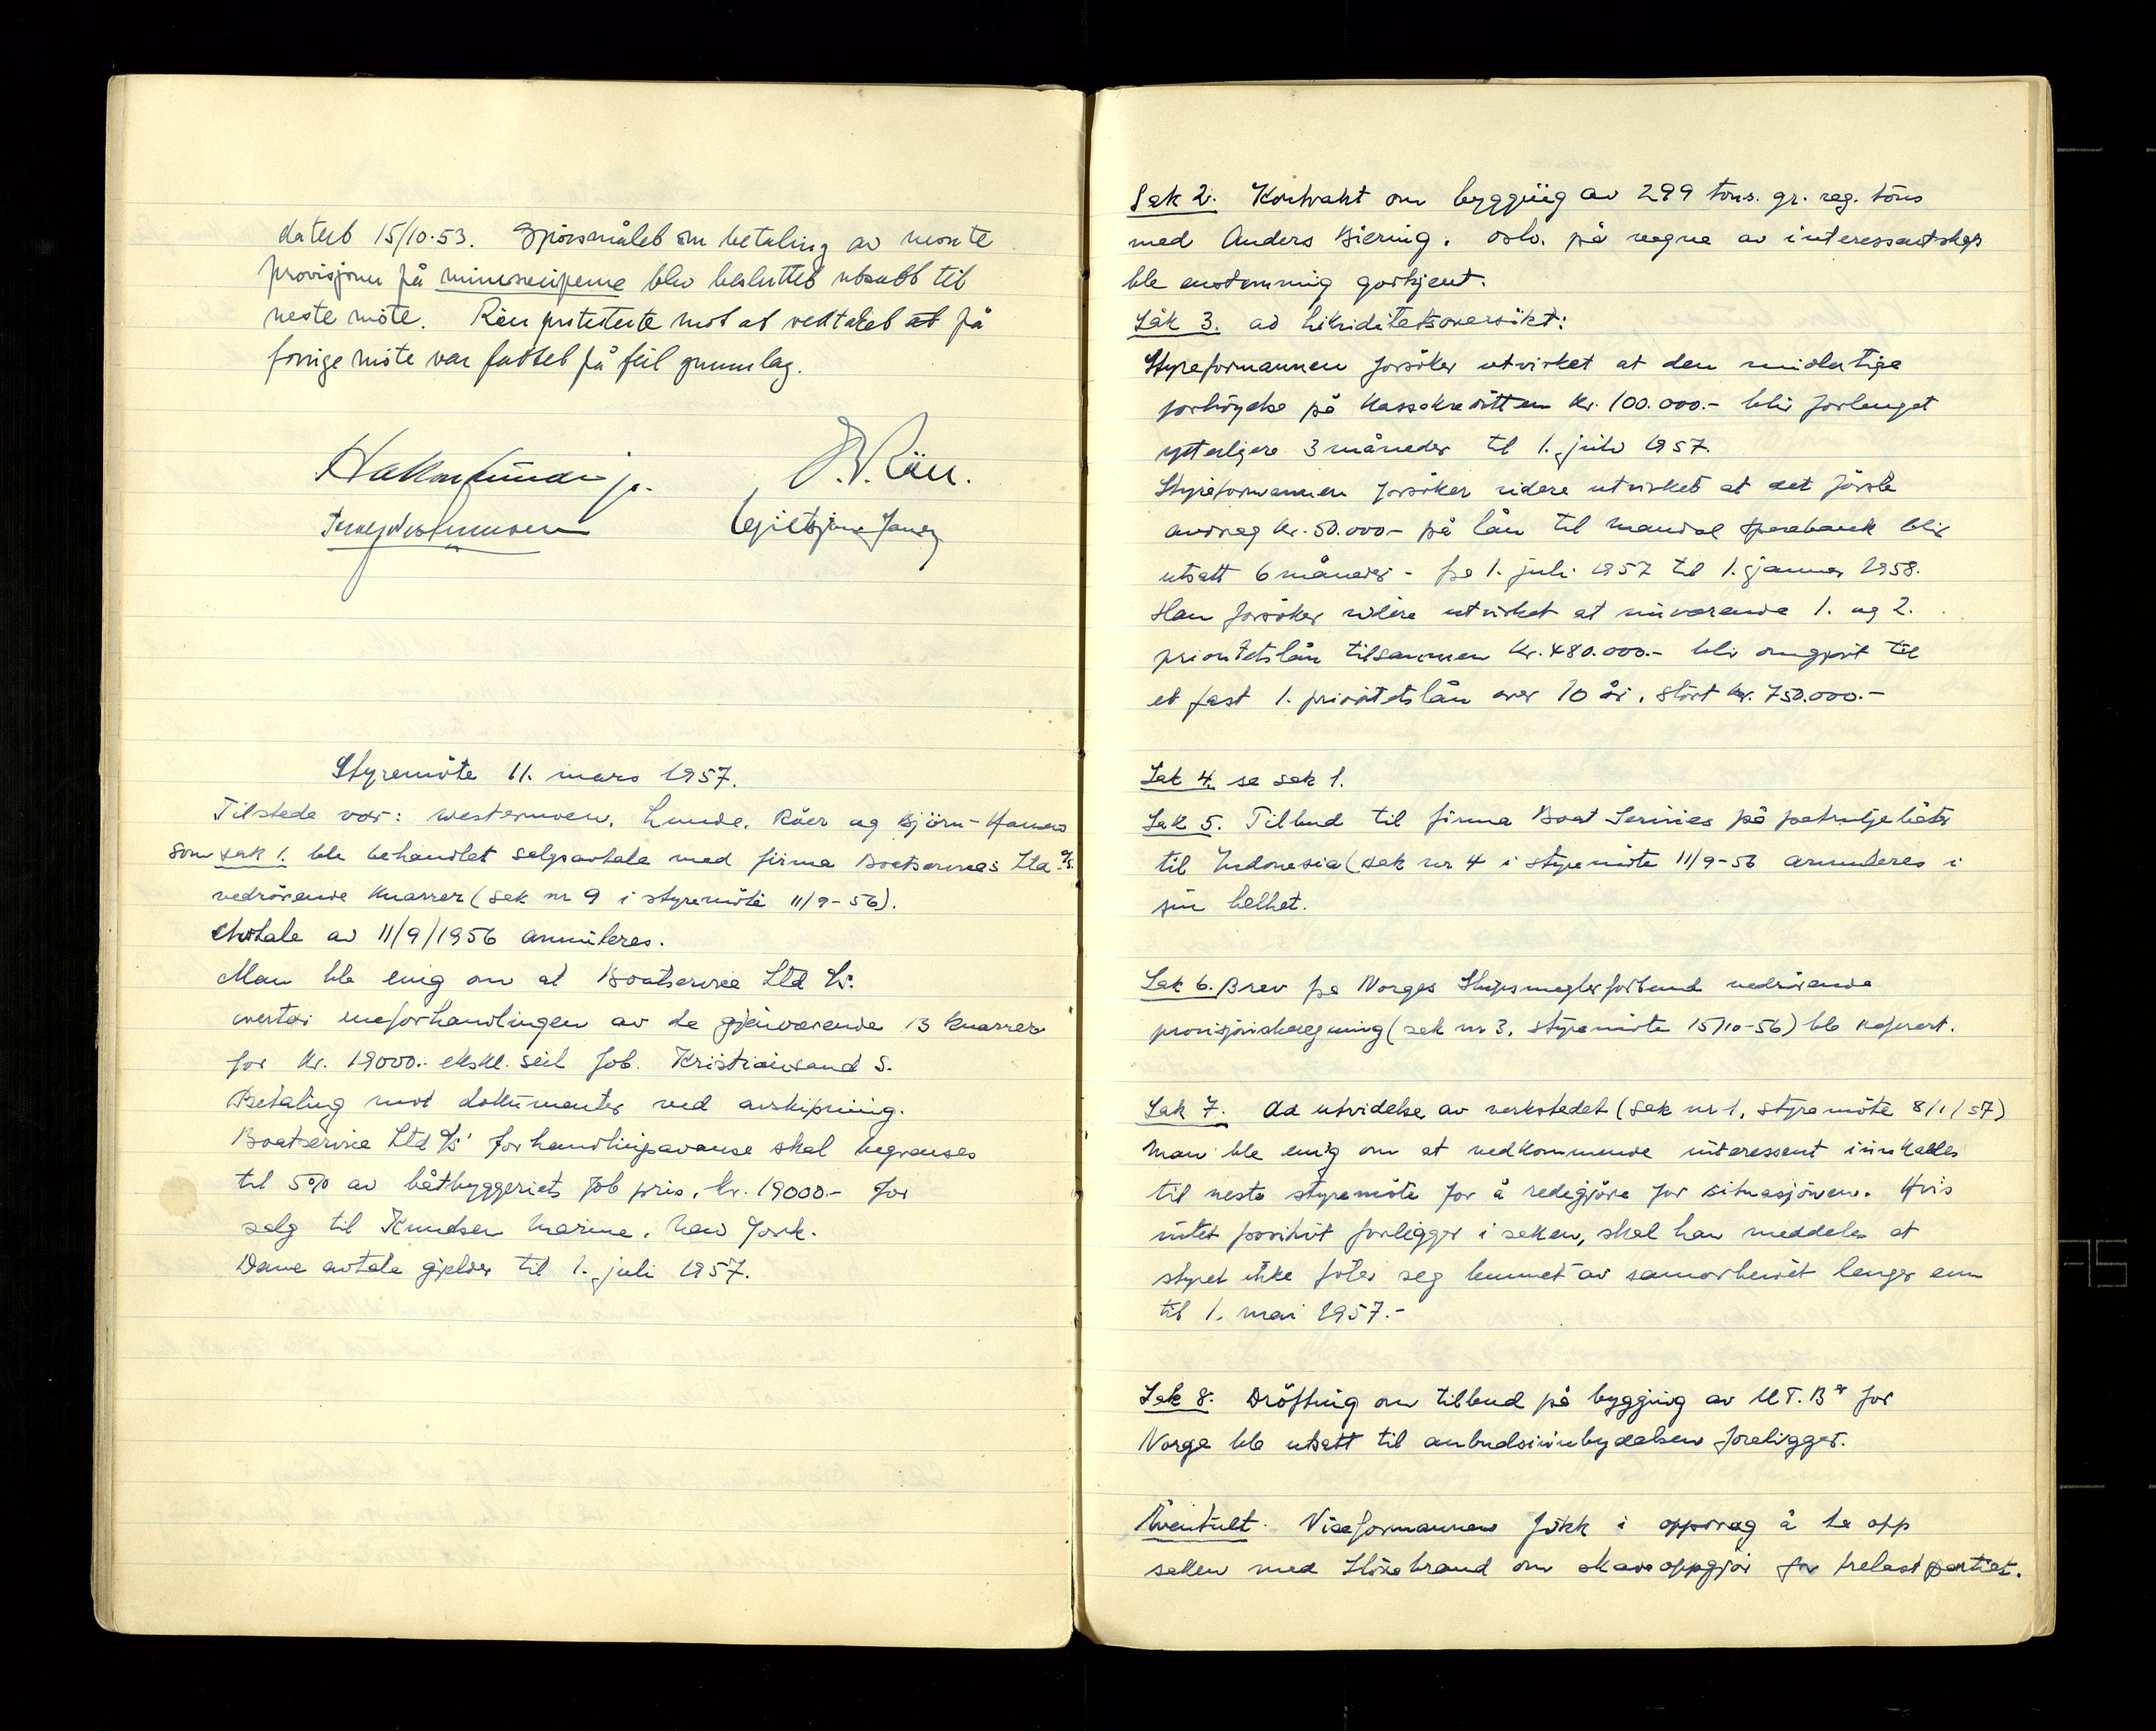 datert 15/10-53. Spörsmålet om betaling av
provisjonen på minesveiperne blev besluttet utsatt til
neste möte. Röer protesterte mot at vedtaket at på
forrige möte var fattet på feil grunnlag.
Styremöte 11. mars 1957.
Tilstede var: Westermoen, Lunde, Röer og Björn-Hansen
som sak 1. ble behandlet salgsavtale med firma Boatservice Ltd A/S.
vedrörende knarrer (sak nr 9 i styremöte 11/9-56).
Avtale av 11/9/1956 annuleres.
Man ble enig om at Boatservice Ltd A/S.
overtar eneforhandlingen av de gjenværende 13 knarrer
for kr. 19000.- ekskl. seil fob. Kristiansand S.
Betaling mot dokumenter ved avskipning.
Boatservice Ltd A/S' forhandlingsavanse skal begrenses
til 5% av båtbyggeriets fob pris, kr. 19000.- for
salg til Knudsen Marine, New York.
Denne avtale gjelder til 1. juli 1957.
Sak 2. Kontrakt om bygging av 299 tons. gr. reg. töns
med Anders Biering. Oslo. på vegne av interessentskap
ble enstemmig godkjent.
Sak 3. ad likviditetsoversikt:
Styreformannen forsöker utvirket at den midlertige
forhöyelse på kassekreditten kr. 100.000.- blir forlenget
ytterligere 3 måneder til 1. juli 1957.
Styreformannen forsöker videre utvirket at det förste
avdrag kr. 50.000.- på lån til Mandal Sparebank blir
utsatt 6 måneder - fra 1. juli 1957 til 1. januar 1958.
Han forsöker videre utvirket at nuværende 1. og 2.
prioritetslån tilsammen kr. 480.000.- blir omgjort til
et fast 1. prioritetslån over 10 år, stört kr. 750.000.-
Sak 4. se sak 1.
Sak 5. Tilbud til firma Boat Services på patruljebåter
til Indonesia (sak nr 4 i styremöte 11/9-56 annuleres i
sin helhet.
Sak 6. Brev fra Norges Skipsmeglerforbund vedrörende
provisjonsberegning (sak nr 3, styremöte 15/10-56) ble referert.
Sak 7. Ad utvidelse av verkstedet (sak nr 1, styremöte 8/1/57)
Man ble enig om at vedkommende interessent innkalles
til neste styremöte for å redegjöre for situasjonen. Hvis
intet positivt forligger i saken, skal han meddeles at
styret ikke föler seg bundet av samarbeidet lenger enn
til 1. mai 1957.-
Sak 8. Dröfting om tilbud på bygging av M.T.Ber for
Norge ble utsatt til anbudsinnbydelsen foreligger.
Eventuelt. Viseformannen fikk i oppdrag å ta opp
saken med Storebrand om skadeoppgjör for trelastpartiet.